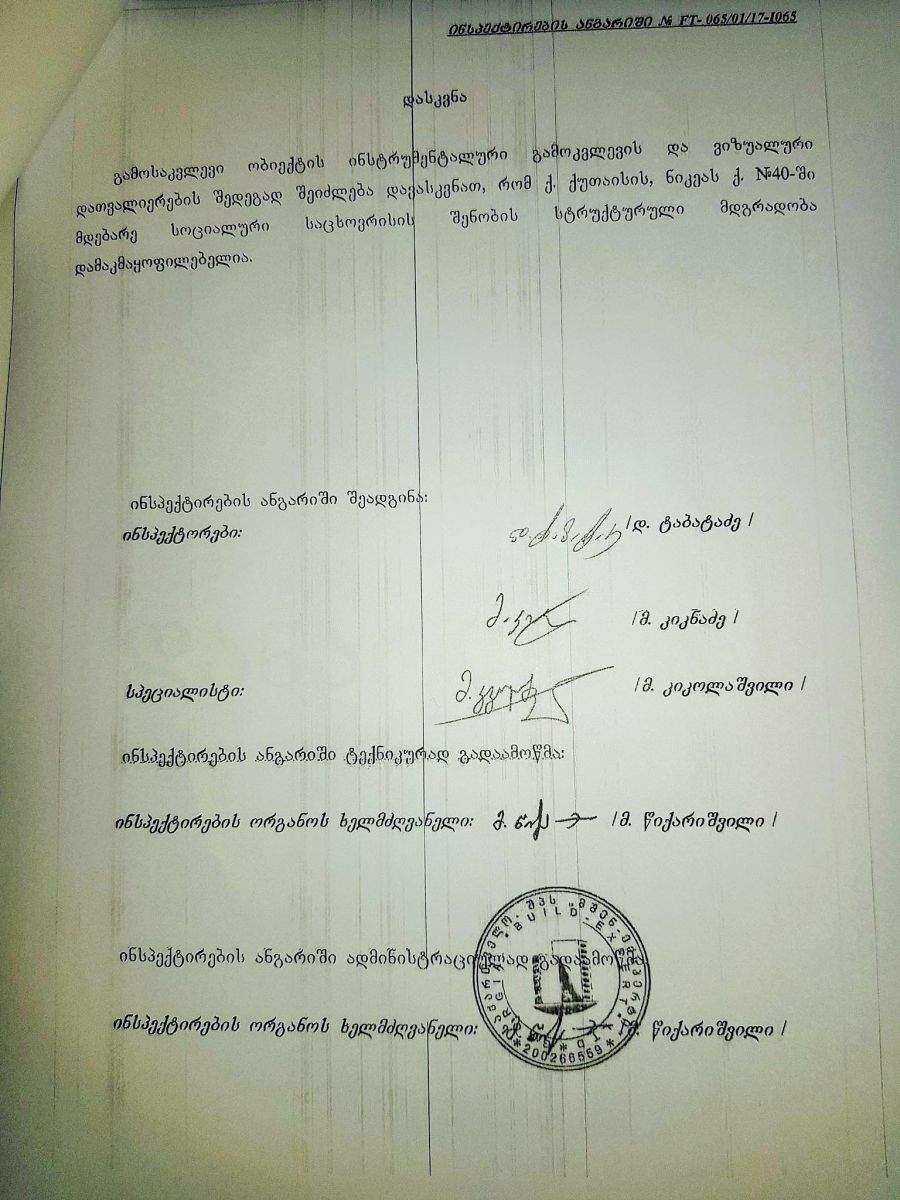 ინსპექტირების ანგარიში № FT- 065/01/17-I065
დასკვნა
გამოსაკვლევი ობიექტის ინსტრუმენტალური გამოკვლევის და ვიზუალური
დათვალიერების შედეგად შეიძლება დავასკვნათ, რომ ქ. ქუთაისის, ნიკეას ქ. №40-ში
მდებარე სოციალური საცხოვრისის შენობის სტრუქტურული მდგრადობა
დამაკმაყოფილებელია.
ინსპექტირების ანგარიში შეადგინა:
ინსპექტორები: /დ. ტაბატაძე /
/მ. კიკნაძე /
სპეციალისტი: /მ. კიკოლაშვილი /
ინსპექტირების ანგარიში ტექნიკურად გადაამოწმა:
ინსპექტირების ორგანოს ხელმძღვანელი: /მ. წიქარიშვილი /
ინსპექტირების ანგარიში ადმინისტრაციულად გადაამოწმა:
ინსპექტირების ორგანოს ხელმძღვანელი: მ. წიქარიშვილი /
BUILD-EXPERT
LTD
*200266559*